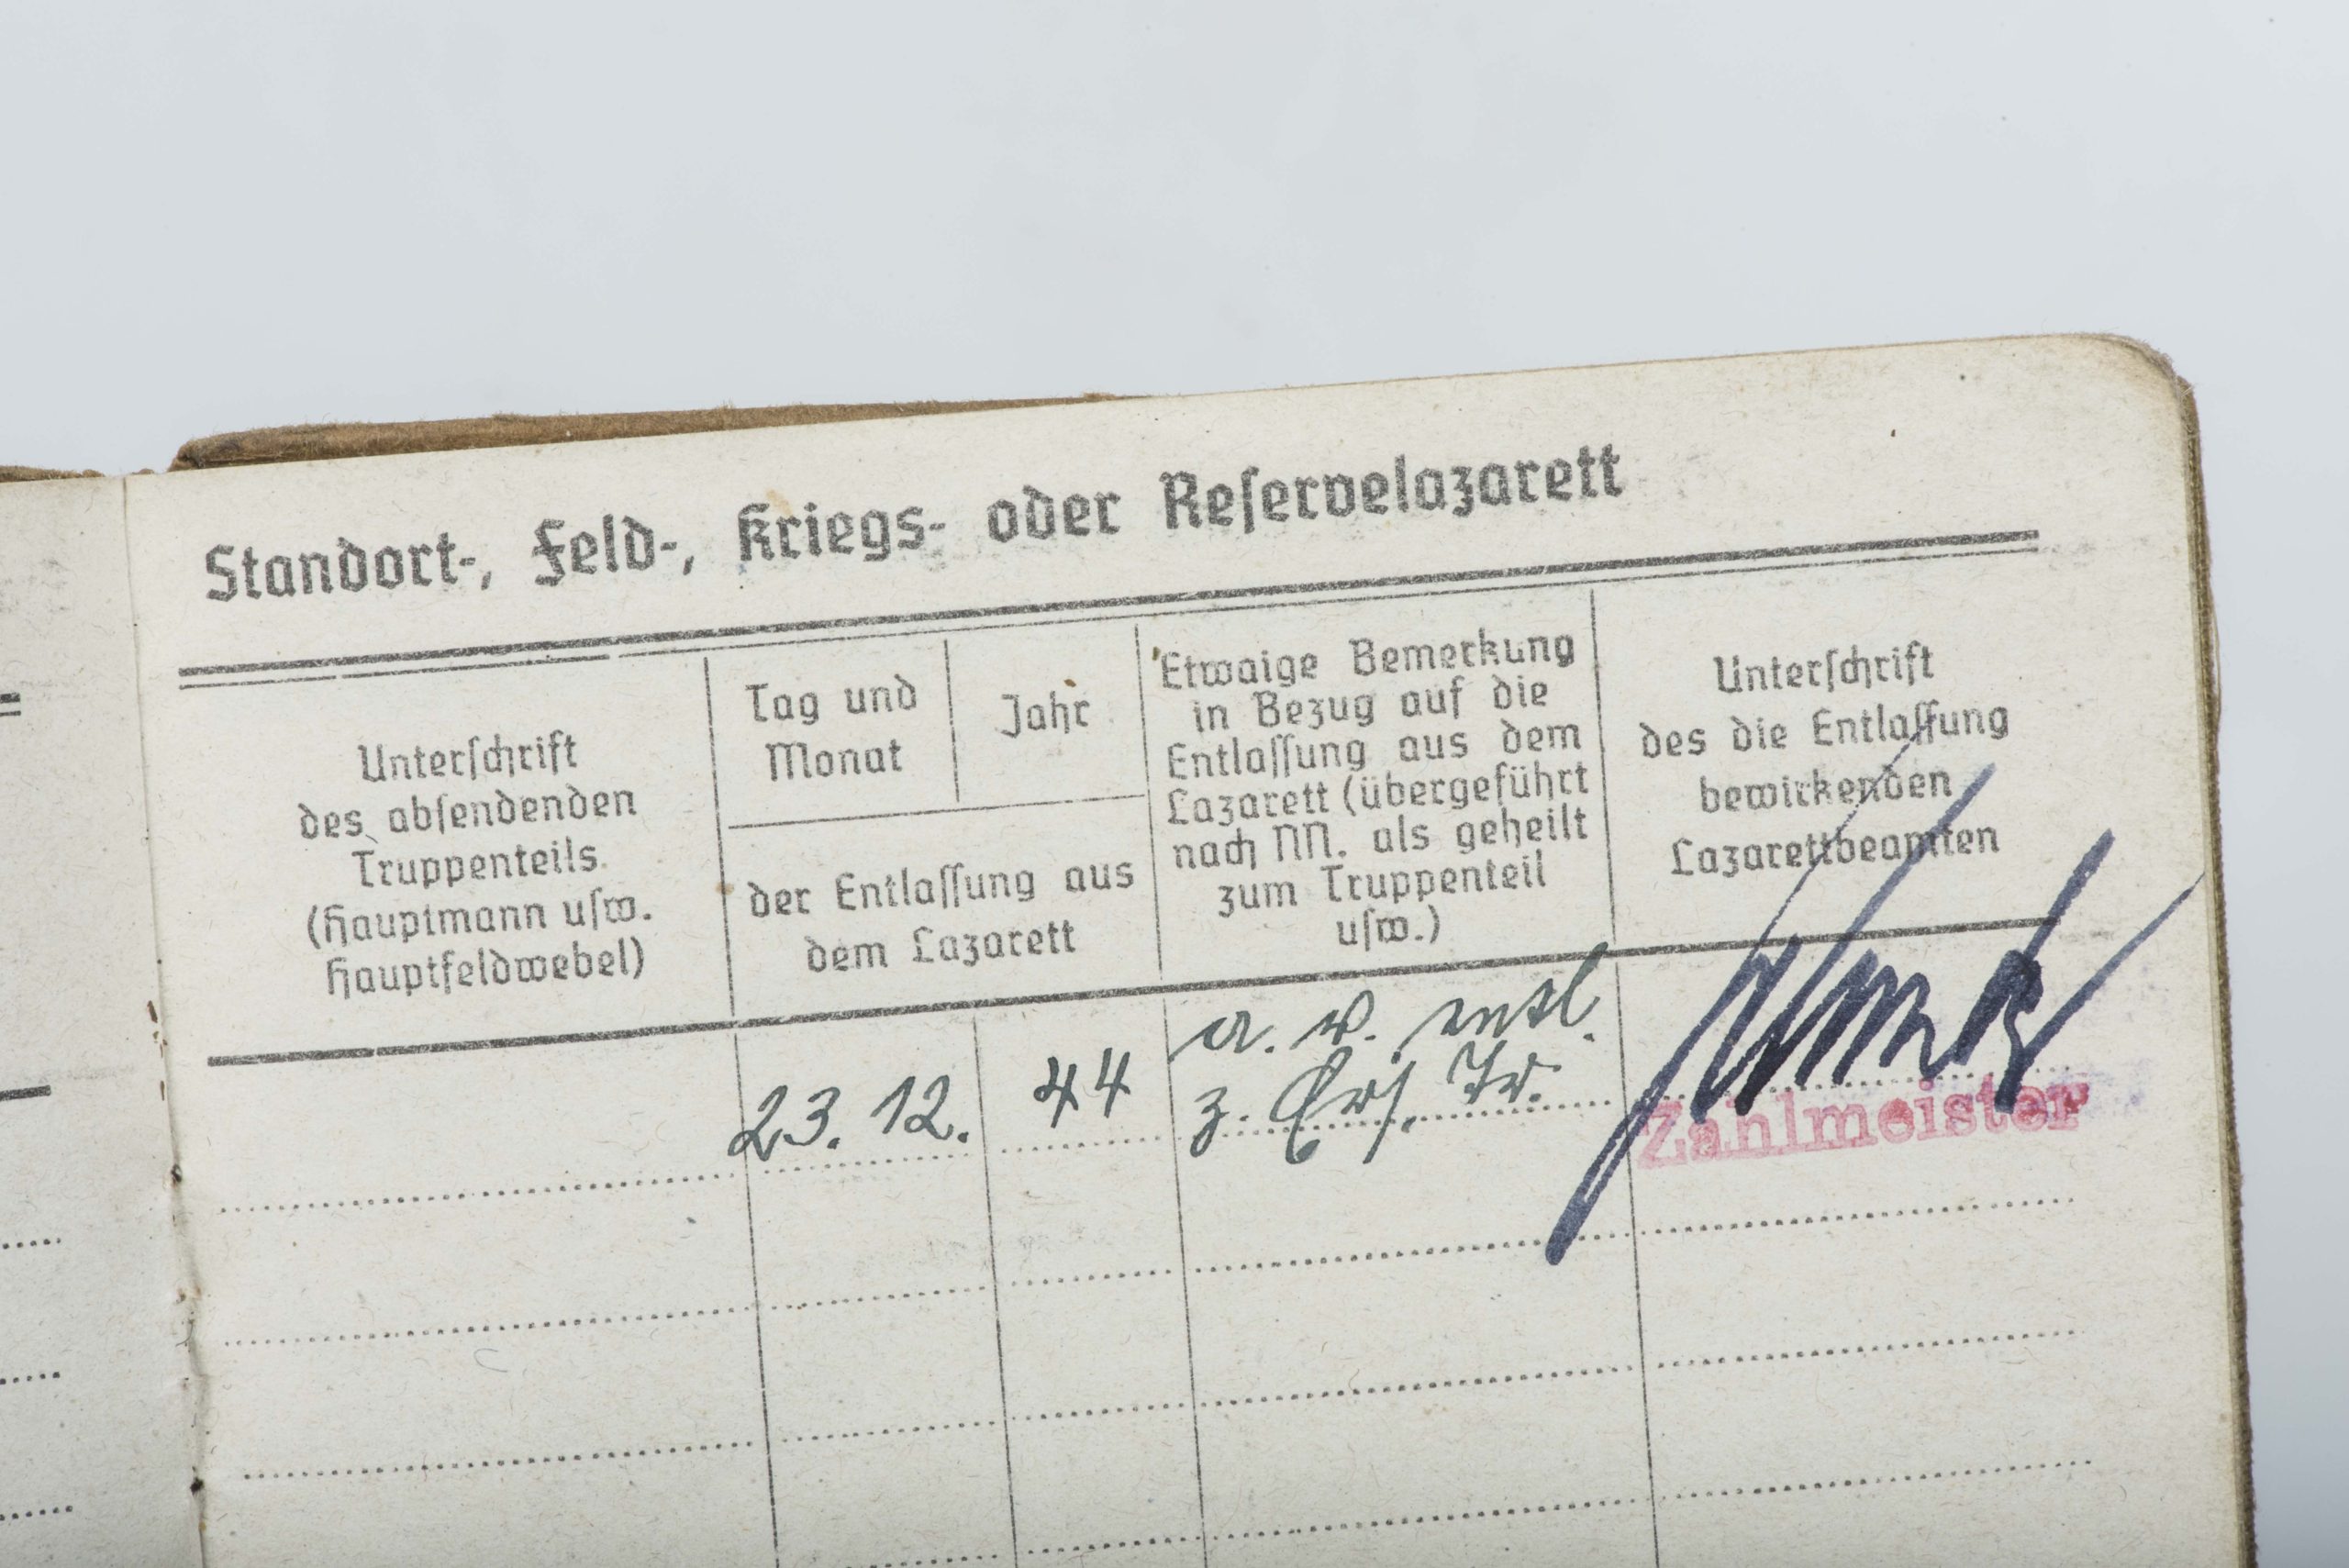 Standort-, Feld-, Kriegs- oder Reservelazarett
Unterschrift
des absendenden
Truppenteils
(Hauptmann usw.
Hauptfeldwebel)
Tag und
Monat
Jahr
der Entlassung aus
dem Lazarett
Etwaige Bemerkung
in Bezug auf die
Entlassung aus dem
Lazarett (übergeführt
nach NN. als geheilt
zum Truppenteil
usw.)
Unterschrift
des die Entlassung
bewirkenden
Lazarettbeamten
23. 12.
44
a. v. entl.
z. Ers. Tr.
Zahlmeister